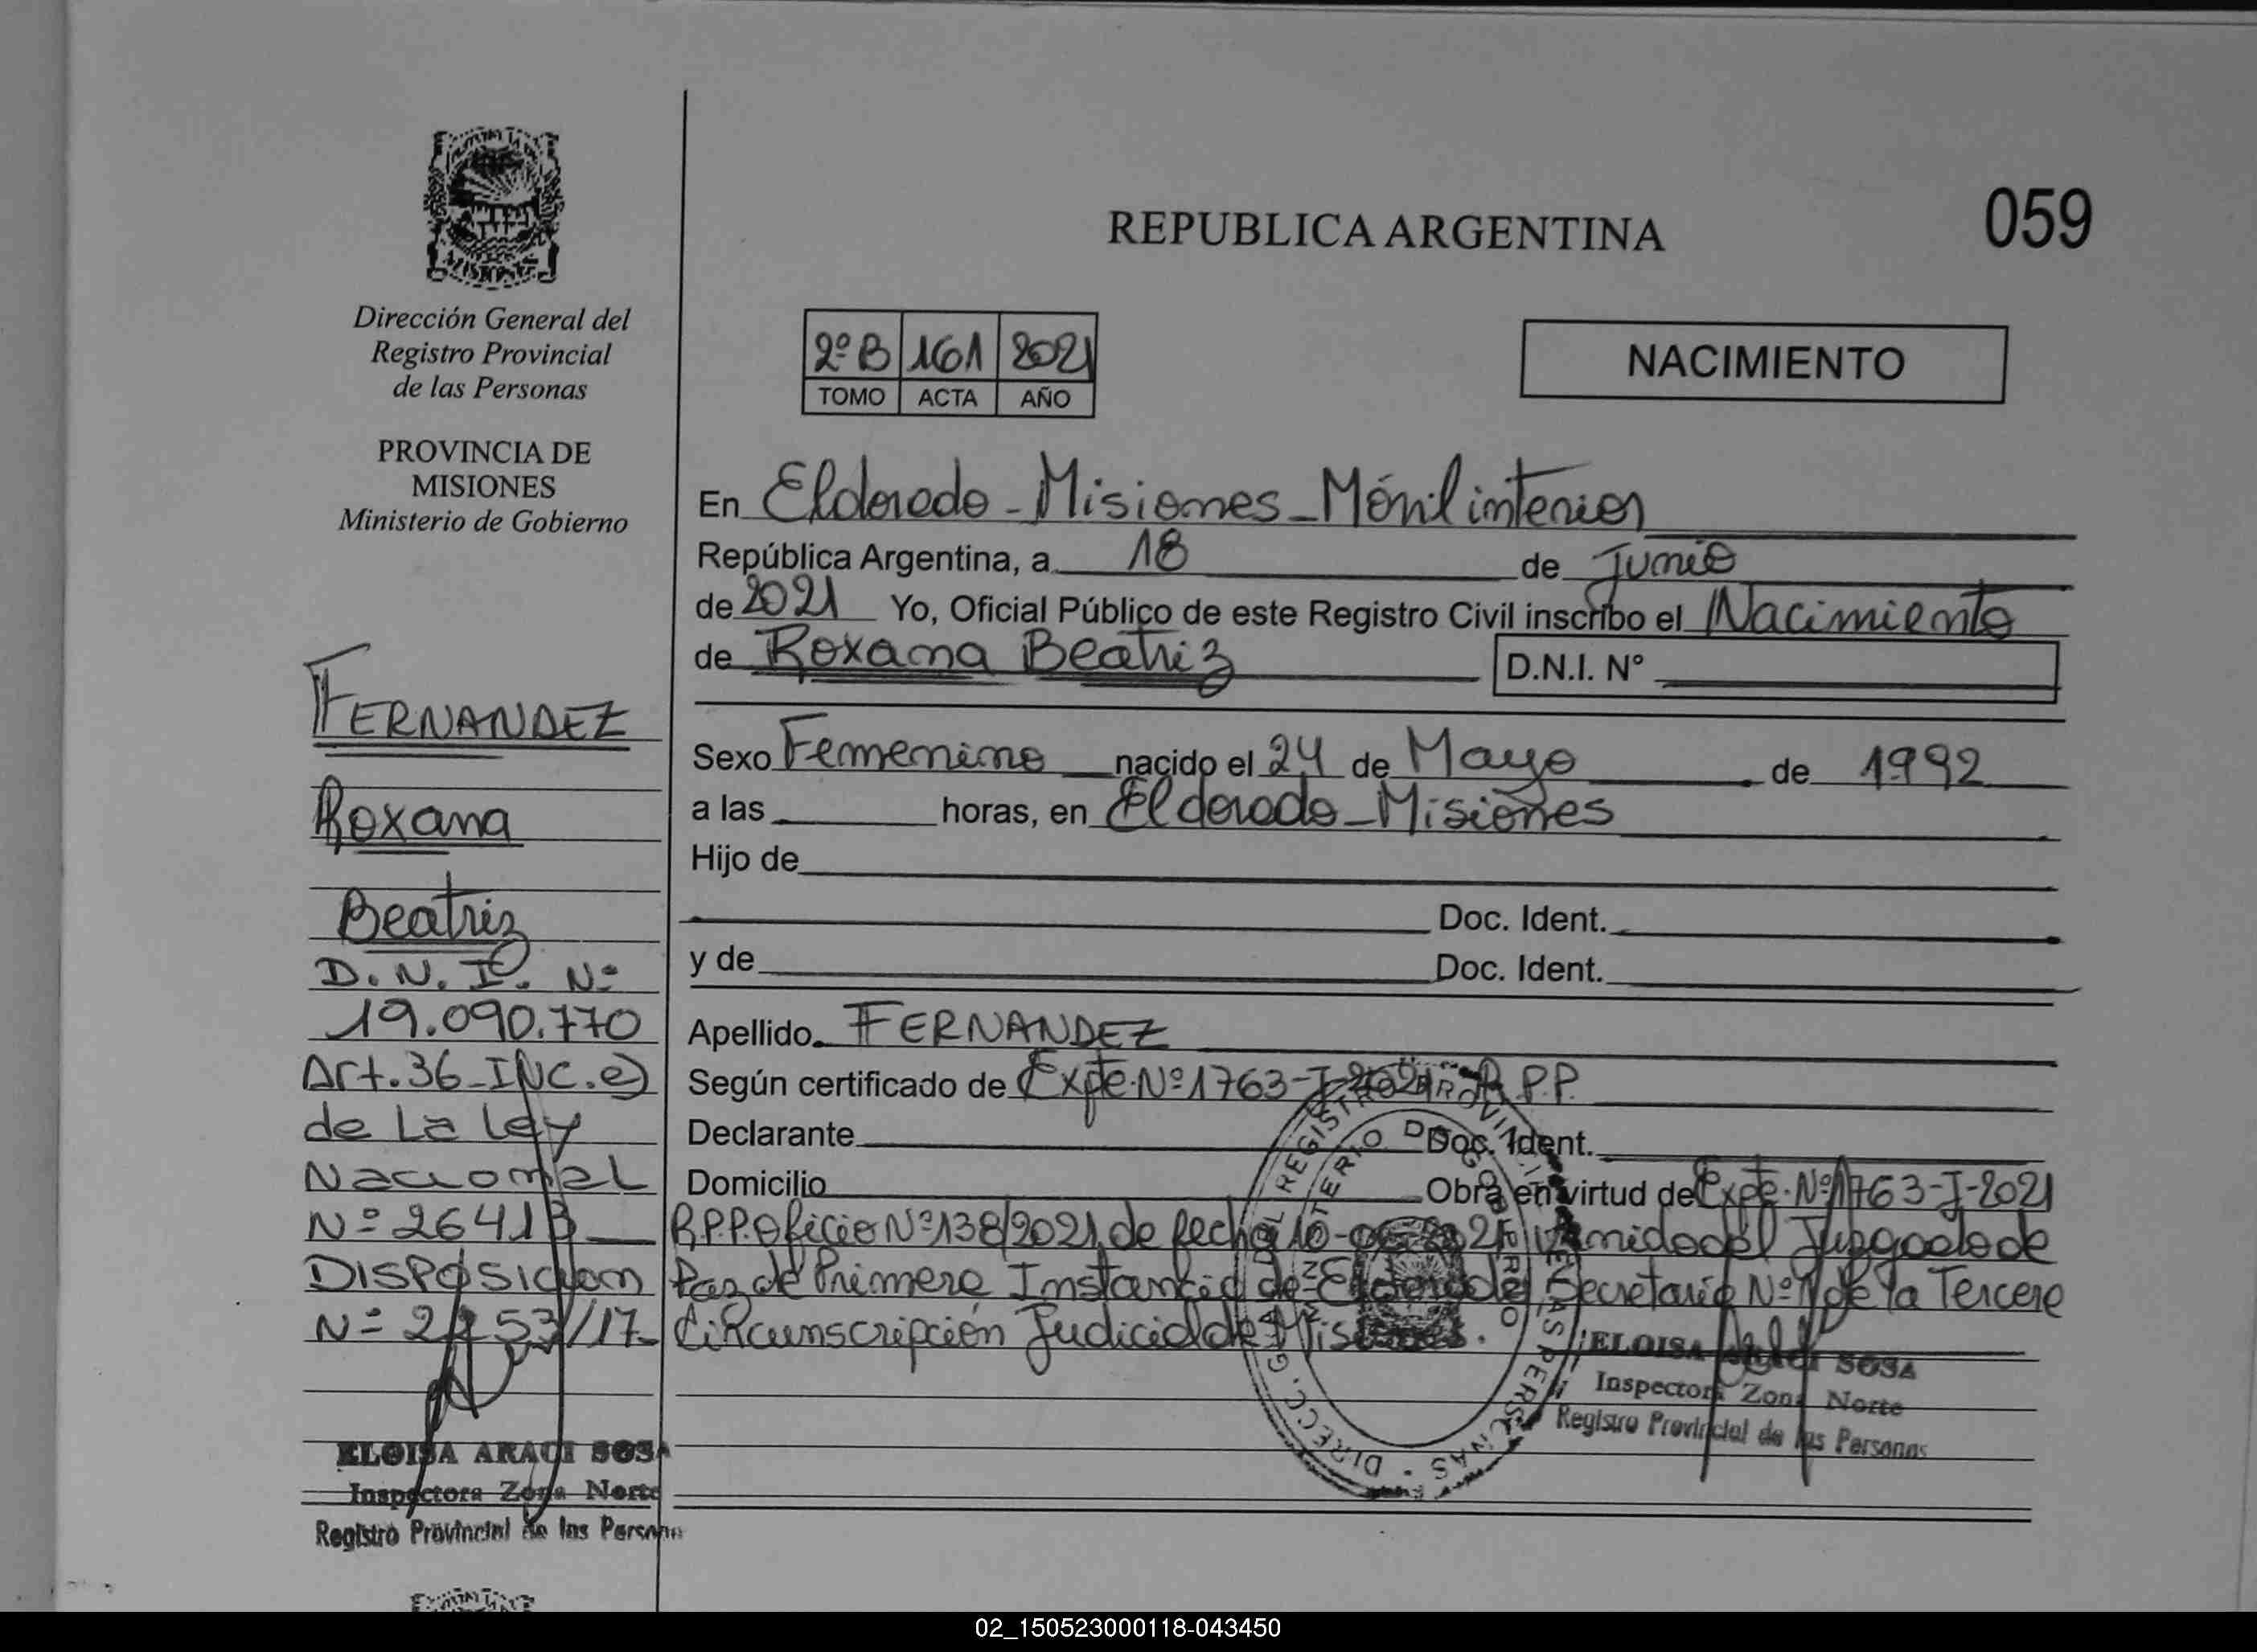 REPUBLICA ARGENTINA
059
Dirección General del
Registro Provincial
de las Personas
PROVINCIA DE
MISIONES
Ministerio de Gobierno
2º B 161 2021
TOMO ACTA AÑO
NACIMIENTO
En Eldorado - Misiones - Móvil interior
República Argentina, a 18 de Junio
de 2021 Yo, Oficial Público de este Registro Civil inscribo el Nacimiento
de Roxana Beatriz D.N.I. Nº
Sexo Femenino nacido el 24 de Mayo de 1992
a las horas, en Eldorado - Misiones
Hijo de
Doc. Ident.
y de Doc. Ident.
Apellido FERNANDEZ
Según certificado de Expte. Nº 1763-J-2021 R.P.P.
Declarante Doc. Ident.
Domicilio Obra en virtud de Expte. Nº 1763-J-2021
R.P.P. Oficio Nº 138/2021 de fecha 10- del Juzgado de
Paz de Primera Instancia de Eldorado Secretaria Nº 1 de la Tercera
Circunscripción Judicial de Misiones.
ELOISA SOSA
Inspectora Zona Norte
Registro Provincial de las Personas
FERNANDEZ
Roxana
Beatriz
D.N.I. Nº
19.090.770
Art. 36 - INC. e)
de La Ley
Nacional
Nº 26413
DISPOSICION
Nº /17
ELOISA ARACI SOSA
Inspectora Zona Norte
Registro Provincial de las Persona
02_150523000118-043450